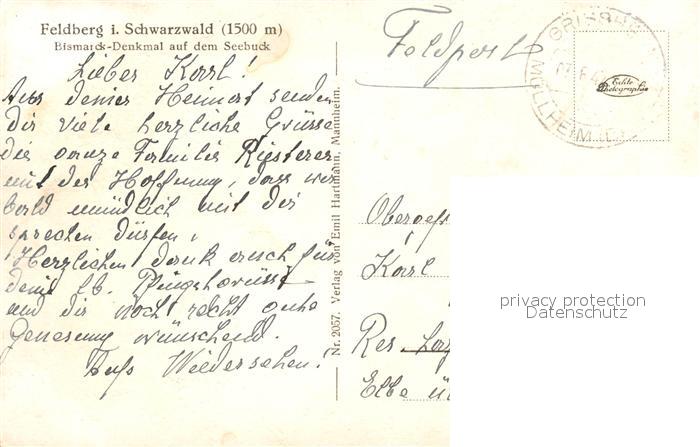 Feldberg i. Schwarzwald (1500 m)
Bismarck-Denkmal auf dem Seebuck
Lieber Karl!
Aus deiner Heimat senden
dir viele herzliche Grüsse
die ganze Familie Riesterer
mit der Hoffnung, dass wir
bald mündlich mit dir
sprechen dürfen.
Herzlichen Dank auch für
dein lb. Pfingstgrüssle
und dir noch recht gute
Genesung wünschend.
Aufs Wiedersehen.
Nr. 2057. Verlag von Emil Hartmann, Mannheim.
Feldpost
MÜLLHEIM
Echte
Photographie
Obergefr
Karl
Res.
Elbe
privacy protection
Datenschutz